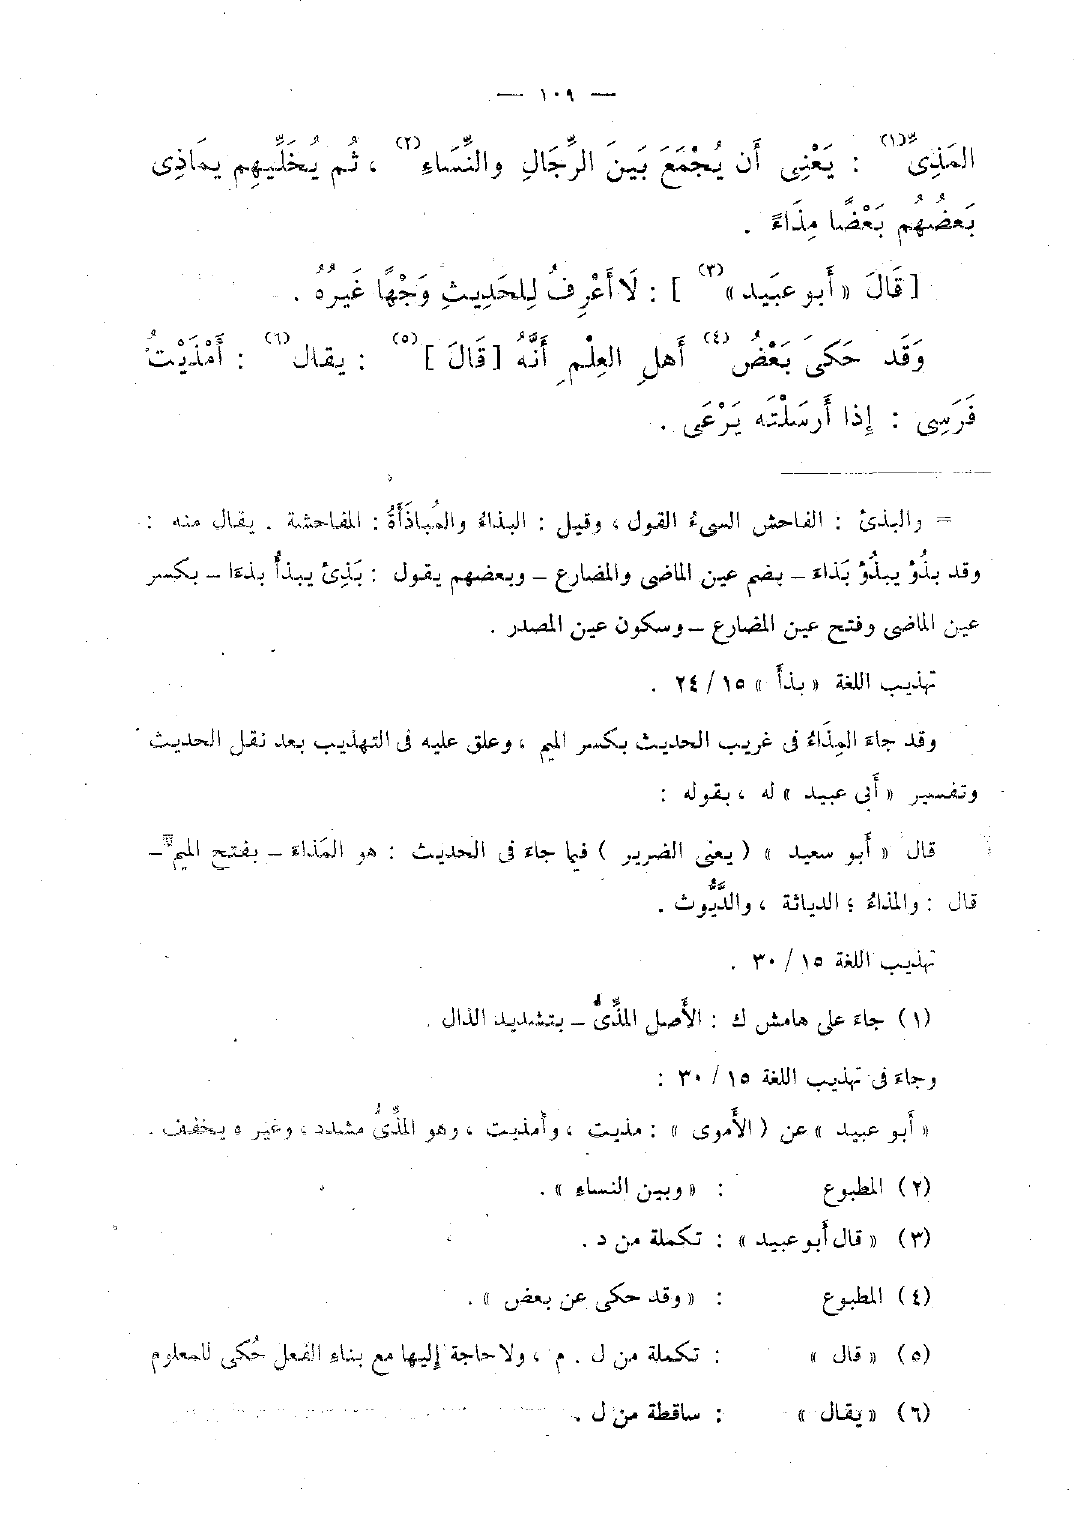 — ١٠٩ —
المَذِىِّ (١) : يَعْنِى أَن يُجْمَعَ بَينَ الرِّجَالِ والنِّسَاءِ (٢) ، ثُم يُخَلِّيهِم يمَاذِى
بَعضُهُم بَعْضًا مِذَاءً .
[ قَالَ « أَبو عبَيد » (٣) ] : لَا أَعْرِفُ لِلحَدِيثِ وَجْهًا غَيرُهُ .
وَقَد حَكىَ بَعْضُ (٤) أَهلِ العِلْمِ أَنَّهُ [ قَالَ ] (٥) : يقال (٦) : أَمْذَيْتُ
فَرَسِى : إِذا أَرسَلْتَه يَرْعَى .
= والبذئ : الفاحش السيءُ القول ، وقيل : البذاءُ والمُباذَأَةُ : المفاحشة . يقال منه :
وقد بذُؤ يبذُؤ بَذاءً – بضم عين الماضى والمضارع – وبعضهم يقول : بَذِئ يبذأُ بذءًا – بكسر
عين الماضى وفتح عين المضارع – وسكون عين المصدر .
تهذيب اللغة « بذأَ » ١٥ / ٢٤ .
وقد جاءَ المِذَاءُ فى غريب الحديث بكسر الميم ، وعلق عليه فى التهذيب بعد نقل الحديث
وتفسير « أَبى عبيد » له ، بقوله :
قال « أَبو سعيد » ( يعنى الضرير ) فيما جاءَ فى الحديث : هو المَذاءَ – بفتح الميم –
قال : والمذاءُ : الدياثة ، والدَّيُّوث .
تهذيب اللغة ١٥ / ٣٠ .
(١) جاءَ على هامش ك : الأَصل المذِّىُّ – بتشديد الذال .
وجاءَ فى تهذيب اللغة ١٥ / ٣٠ :
« أَبو عبيد » عن ( الأَموى » : مذيت ، وأَمذيت ، وهو المذِّىُّ مشدد ، وغيره يخفف .
(٢) المطبوع : « وبين النساءِ » .
(٣) « قال أَبو عبيد » : تكملة من د .
(٤) المطبوع : « وقد حكى عن بعض » .
(٥) « قال » : تكملة من ل . م ، ولا حاجة إليها مع بناءِ الفعل حُكى للمعلوم
(٦) « يقال » : ساقطة من ل .